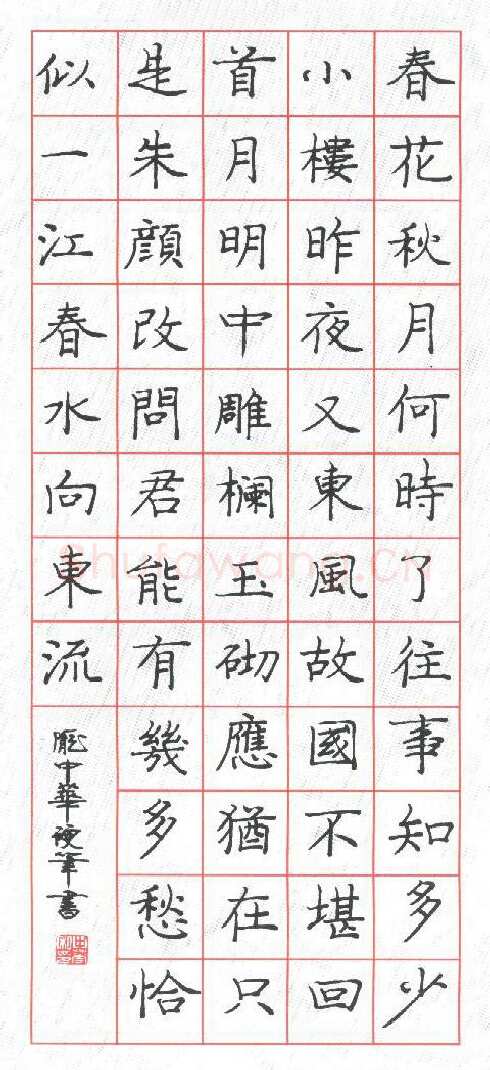 春花秋月何時了往事知多少
小樓昨夜又東風故國不堪回
首月明中雕欄玉砌應猶在只
是朱顏改問君能有幾多愁恰
似一江春水向東流
龐中華硬筆書
Shufawang.CN